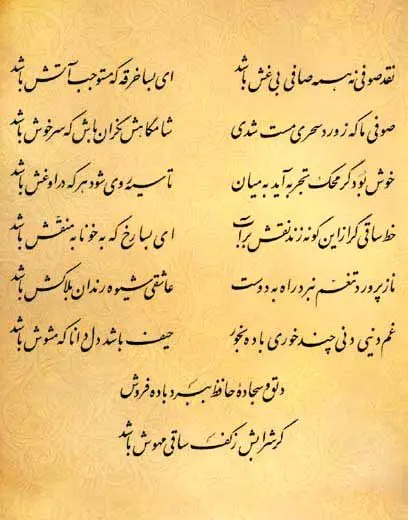 نقد صوفی نه همه صافی بی غش باشد ای بسا خرقه که مستوجب آتش باشد
صوفی ما که ز ورد سحری مست شدی شامگاهش نگران باش که سرخوش باشد
خوش بُوَد گر محک تجربه آید به میان تا سیه روی شود هر که در او غش باشد
خط ساقی گر از این گونه زند نقش بر آب ای بسا رخ که به خونابه منقّش باشد
ناز پرورد تنعّم نبرد راه به دوست عاشقی شیوه رندان بلاکش باشد
غم دنیی دنی چند خوری باده بخور حیف باشد دل دانا که مشوش باشد
دلق و سجادهٔ حافظ ببرد باده فروش
گر شرابش ز کف ساقی مهوش باشد